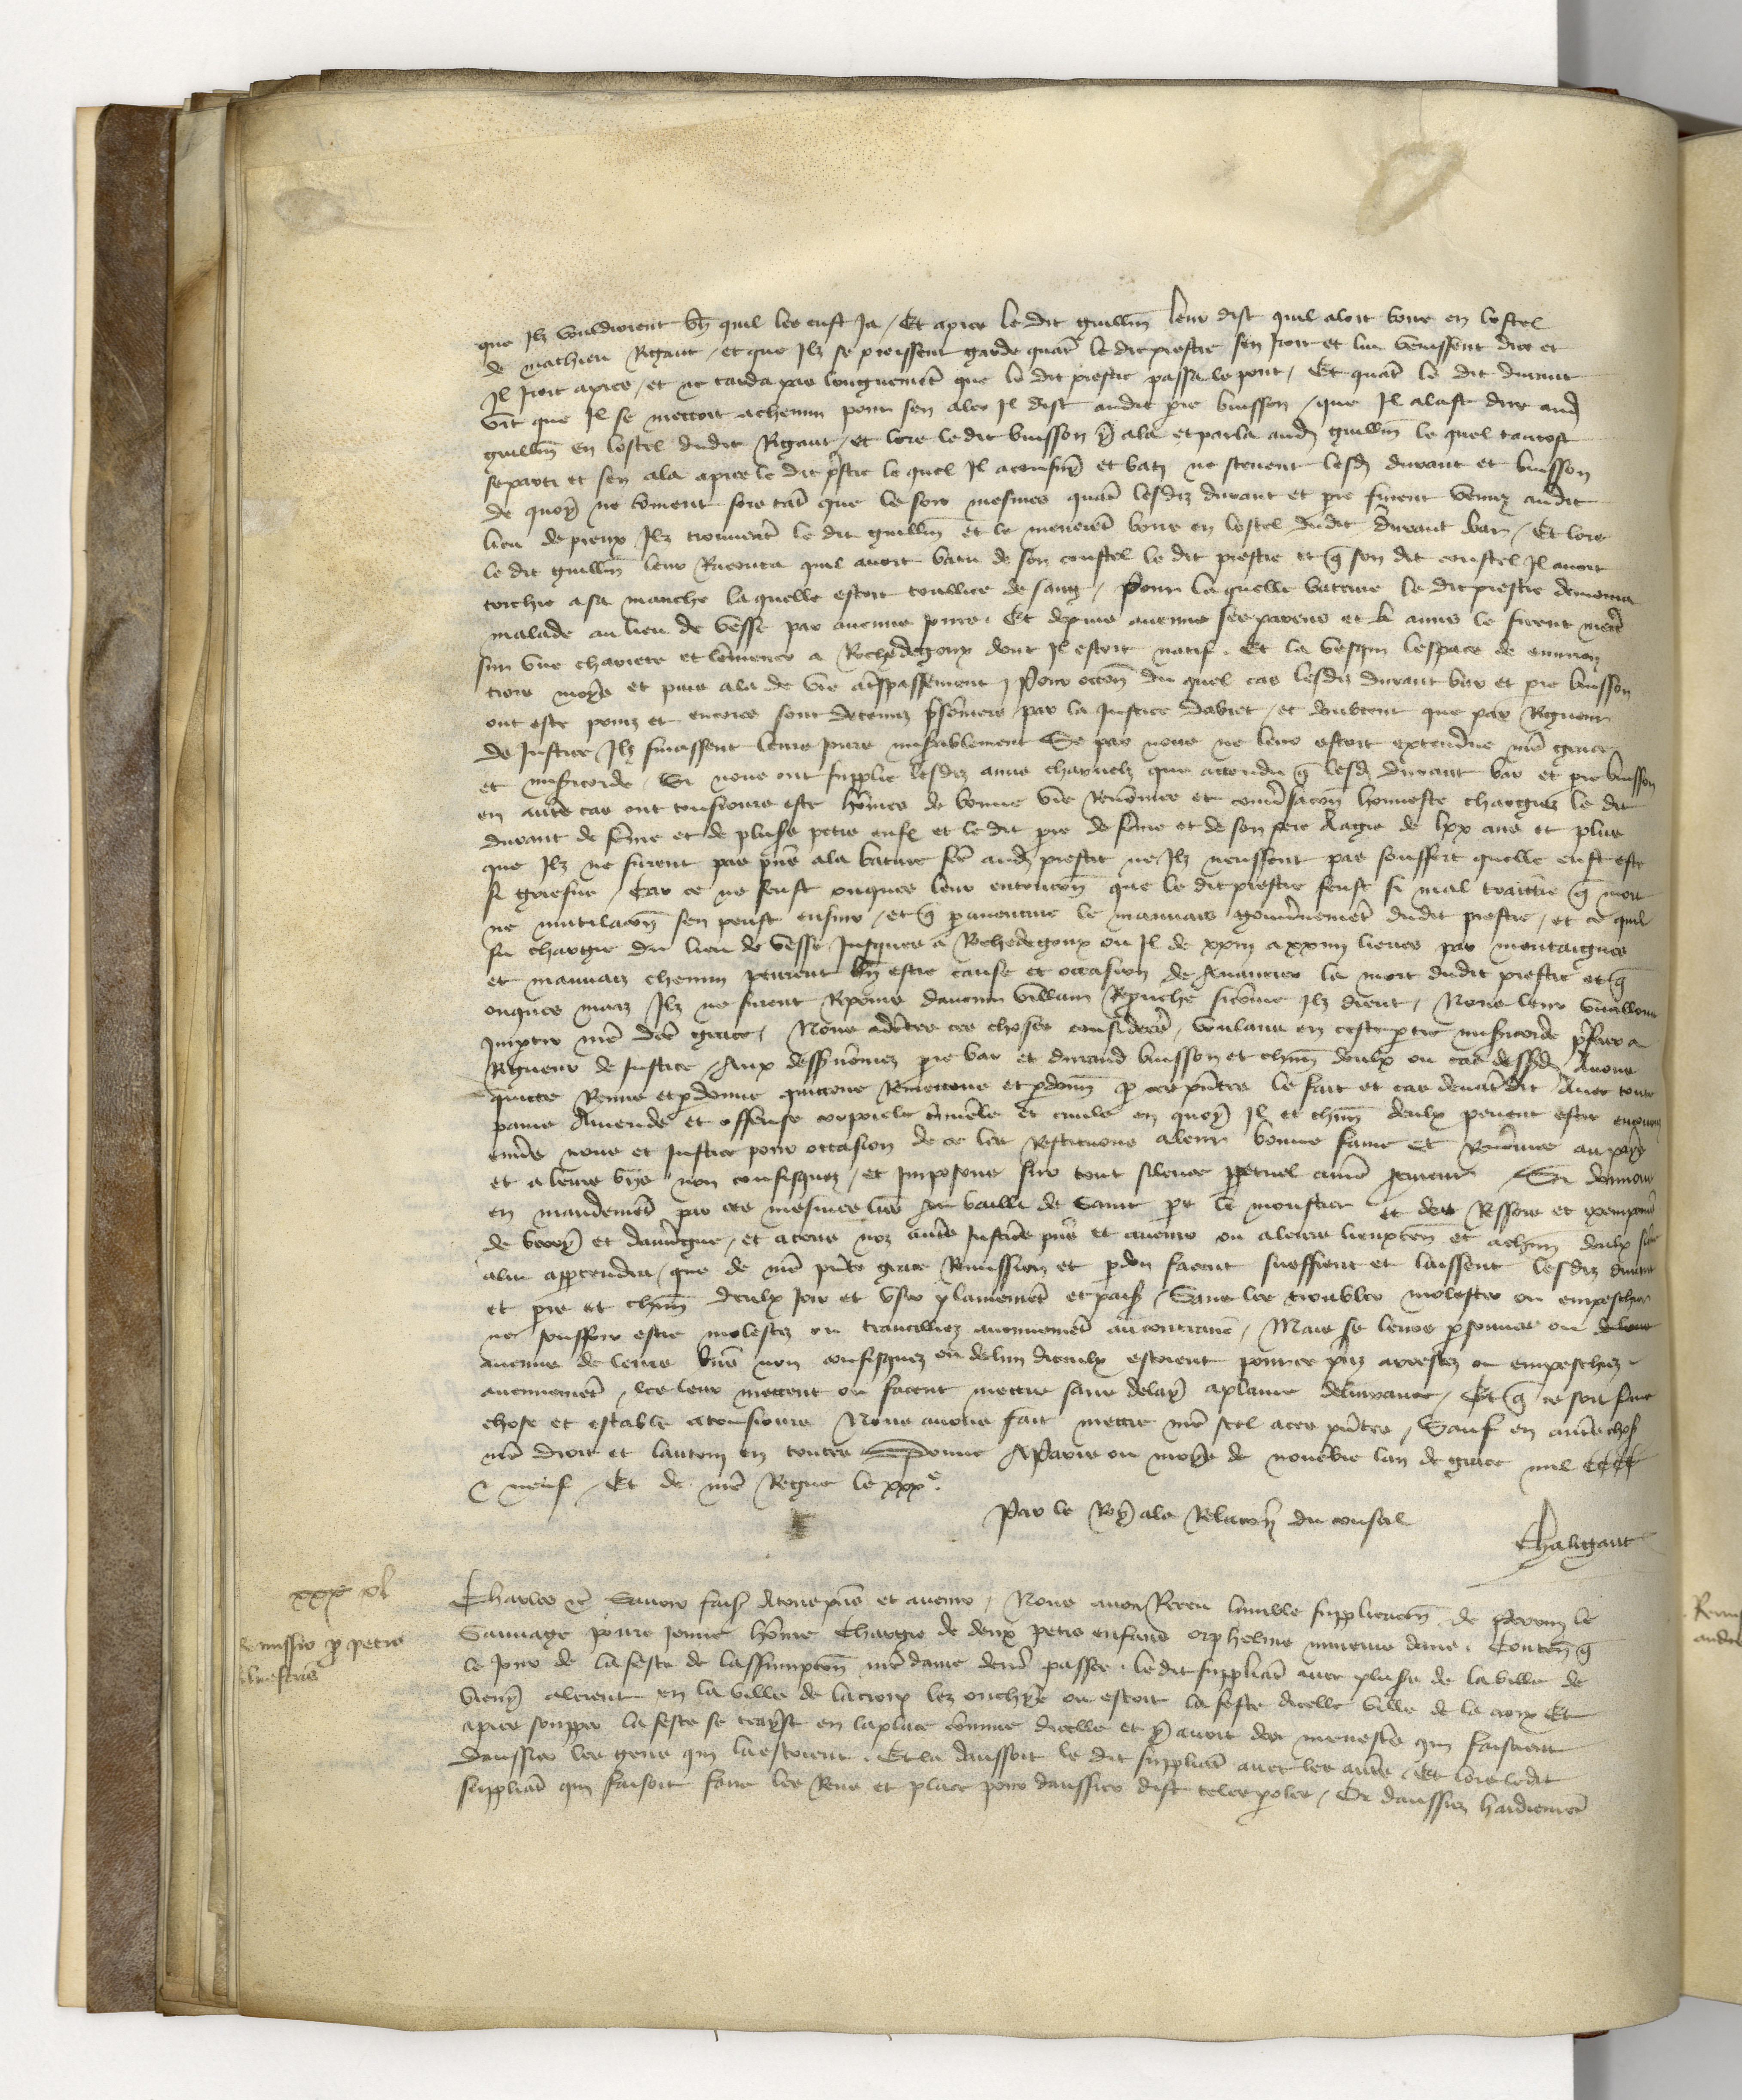 que Ilz vouldroient bn̄ quil les eust Ja / Et apres le dit guillm̄ leur dist quil aloit boire en lostel
de mathieu Rigaut / et que Ilz se preissent garde quāt le dit prestre sen Iroit et lui venissent dire et
Il Iroit apres / et ne tarda pas longuemēt que le dit prestre passa le pont / Et quāt le dit durant
vit que Il se mettoit achemin pour sen aler Il dist audit pre buisson / que Il alast dire aud
guillm̄ en lostel dudit Rigaut / et lors le dit buisson y ala et parla aud guillm̄ le quel tantost
se parti et sen ala apres le dit prestre le quel Il aconsuy et bati ne scevent lesd durant et buisson
de quoy ne coment fors tāt que le soir mesmes quāt lesdiz durant et pre furent venuz audit
lieu de preux Ilz trouverēt le dit guillm̄ et le menerēt boire en lostel dudit durant bar / Et lors
le dit guillm̄ leur Raconta quil avoit batu de son coustel le dit prestre et q̄ son dit coustel Il avoit
torchie a sa manche la quelle estoit toullee de sang / Pour la quelle bateure le dit prestre demoura
malade au lieu de vesse par aucuns jours . Et depuis aucuns ses parens et amis le firent mett̄
sur une charrete et lēmener a Rochedegoux dont Il estoit natif . Et la vesqui lespace de environ
trois moys et puis ala de vie atspassement / Pour occōn du quel cas lesdiz durant bar et pre buisson
ont este prins et encores sont detenuz prisoniers par la Justice dabret / et doubtent que par Rigueur
de Justice Ilz finassent leurs jours miserablement Se par nous ne leur estoit extendue nr̄e grace
et misericorde . Si nous ont supplie lesdiz amis charnelz que attendu q̄ lesd durant bar et pre buisson
en autre cas ont tousjours este hōmes de bonne vie Renōmee et conversacōn honneste chargiez le dit
durant de fēme et de plusrs petis enfs et le dit pre de fēme et de son pere Aagie de lxx ans et plus
que Ilz ne furent pas pn̄s ala bature fcē aud prestre ne Ilz neussent pas souffert quelle eust este
si griefve / Car ce ne feust onques leur entencōn que le dit prestre feust si mal traittie q̄ mort
ne mutilacōn sen peust ensuir / et q̄ paventure le mauvais gouvernemēt dudit prestre / et ce quil
fu chargie du lieu de vesse Jusques a Rochedegoux ou Il de xxiij a xxiiij lieues par montaignes
et mauvais chemin peurent bn̄ estre cause et occasion de Avancier la mort dudit prestre et q̄
onques mais Ilz ne furent Reprins daucun villain Reprouche sicōme Ilz dient / Nous leur vueillons
Impartir nr̄e dcē grace / Nous adctes ces choses considerees / voulans en ceste partie misericorde prefer a
Rigueur de Justice / Aux dessnōmez pre bar et durand buisson et chūn deulx ou cas dessd Avons
quicte Remis et pdonne quictons Remettons et pdonn̄ p ces pn̄tes le fait et cas devātdit Avec toute
paine Amende et offense corporele crimiele et civile en quoy Ilz et chūn deulx peuent estre encouruz
envers nous et Justice pour occasion de ce les Restituons aleur bonne fame et Renōmee au pays
et a leurs biens non confisquez / et Imposons sur tout silence ppetuel a nr̄e procureur Si donnons
en mandemēt par ces mesmes lr̄es au bailli de Saint pre le moustier et des Ressors et exempcōns
de berry et dauvergne / et a tous noz autres Justiciers pn̄s et avenir ou aleurs lieuxten̄ et achūn deulx sicōe
alui appartendra / que de nr̄e pn̄te grace Remission et pdon facent sueffrent et laissent lesdiz durant
et pre et chūn deulx Joir et user plainemēt et paisiblt Sans les troubler molester ou empeschier
ne souffrir estre molestez ou travailliez aucunement au contraire / Mais se leurs psonnes ou
aucuns de leurs biens non confisquez ou de lun diceulx estoient pour ce prins arrestez ou empeschiez
aucunemēt / les leur mettent ou facent mettre sans delay aplaine delivrance / Et q̄ ce soit ferme
chose et estable atousjours Nous avons fait mettre nr̄e scel a ces pn̄tes / Sauf en autres choses
nr̄e droit et lautruy en toutes Donne A paris ou moys de novembre lan de grace mil CCCC
et neuf Et de nr̄e Regne le xxxe.
Par le Roy ala Relacōn du conseil
Chaligaut
xl
Remissio p petro
silvestris
Charles &c̄ Savoir faisons Atous pn̄s et avenir / Nous avon Receu lumble supplicacōn de perrin le
Sauvage povre Jeune hōme Chargie de deux petis enfans orphelins mineurs dans . Conten̄ q̄
le Jour de la feste de lassumpcōn nr̄e dame derr̄ passee . ledit suppliāt avec plusrs de la ville de
vieny alerent en la ville de lacroix lez onchyre ou estoit la feste dicelle ville de la croix Et
apres soupper la feste se trayst en laplace cōmune dicelle et y avoit des menestr̄s qui faisoient
danssier les gens qui la estoient . Et la danssoit le dit suppliāt avec les autres . Et lors ledit
suppliāt qui faisoit faire les Rens et place pour danssier dist teles poles / Or danssiez hardiemēt